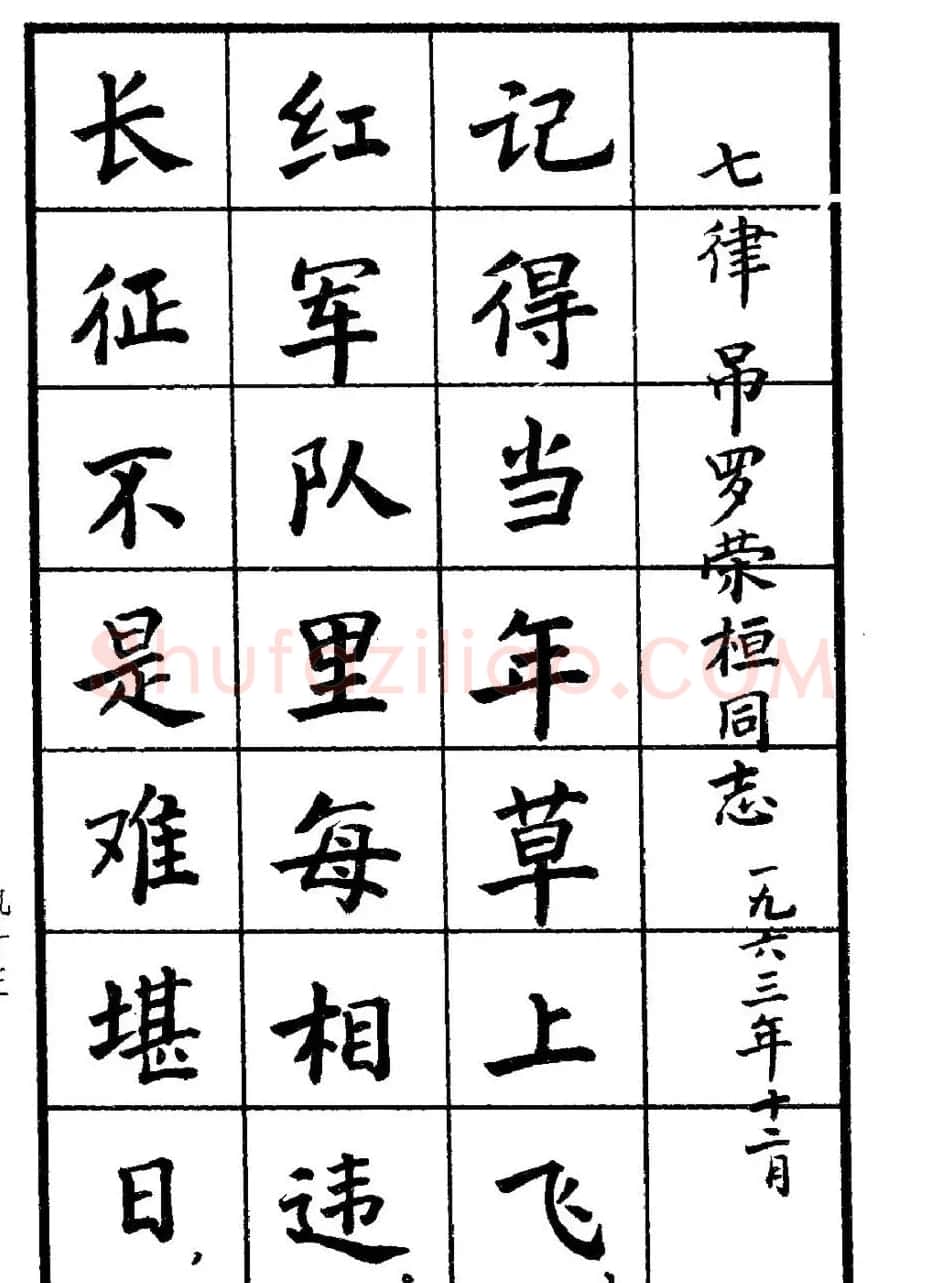 七律 吊罗荣桓同志 一九六三年十二月
记得当年草上飞，
红军队里每相违。
长征不是难堪日，
shufaziliao.com